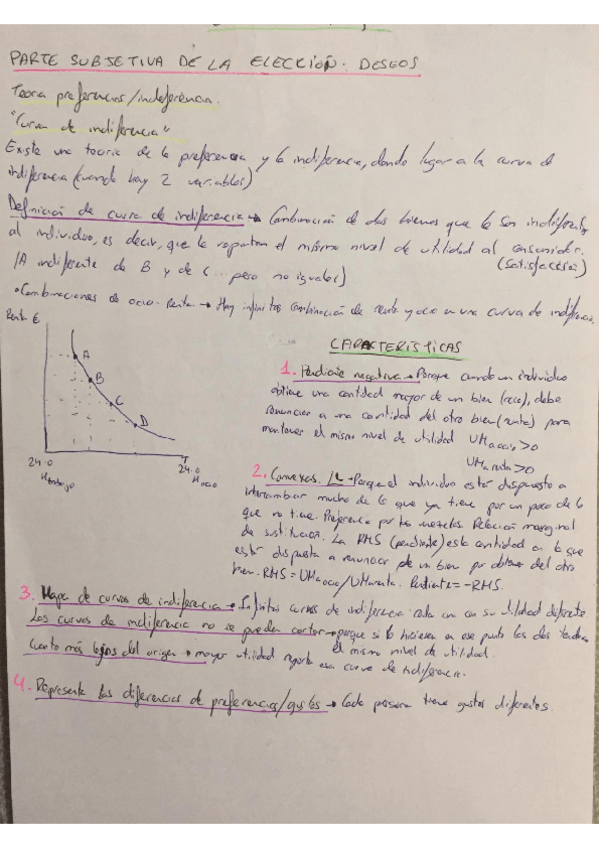 PARTE SUBJETIVA DE LA ELECCIÓN. DESEOS
Teoría preferencias/indeferencia.
"Curva de indiferencia"
Existe una teoría de la preferencia y la indiferencia, dando lugar a la curva de
indiferencia (cuando hay 2 variables)
Definición de curva de indiferencia → Combinación de dos bienes que le son indiferentes
al individuo, es decir, que le reportan el mismo nivel de utilidad al consumidor.
(A indiferente de B y de C ... pero no iguales) (satisfacción)
• Combinaciones de ocio-Renta → Hay infinitas combinación de renta y ocio en una curva de indiferencia.
Renta €
A
B
C
D
24·0
Htrabajo
24·0
Hocio
CARACTERÍSTICAS
1. Pendiente negativa → Porque cuando un individuo
obtiene una cantidad mayor de un bien (ocio), debe
renunciar a una cantidad del otro bien (renta) para
mantener el mismo nivel de utilidad UMaocio>0
UMarenta>0
2. Convexas. → Porque el individuo está dispuesto a
intercambiar mucho de lo que ya tiene por un poco de lo
que no tiene. Preferencia por las mezclas. Relación marginal
de sustitución. La RMS (pendiente) es la cantidad a la que
está dispuesta a renunciar de un bien por obtener del otro
bien. RMS = UMaocio/UMarenta. Pendiente = -RMS.
3. Mapa de curvas de indiferencia → Infinitas curvas de indiferencia cada una con su utilidad diferente
Las curvas de indiferencia no se pueden cortar → porque si lo hiciesen a ese punto las dos tendrían
el mismo nivel de utilidad.
Cuanto más lejos del origen → mayor utilidad reporta esa curva de indiferencia.
4. Representa las diferencias de preferencias/gustos → Cada persona tiene gustos diferentes.